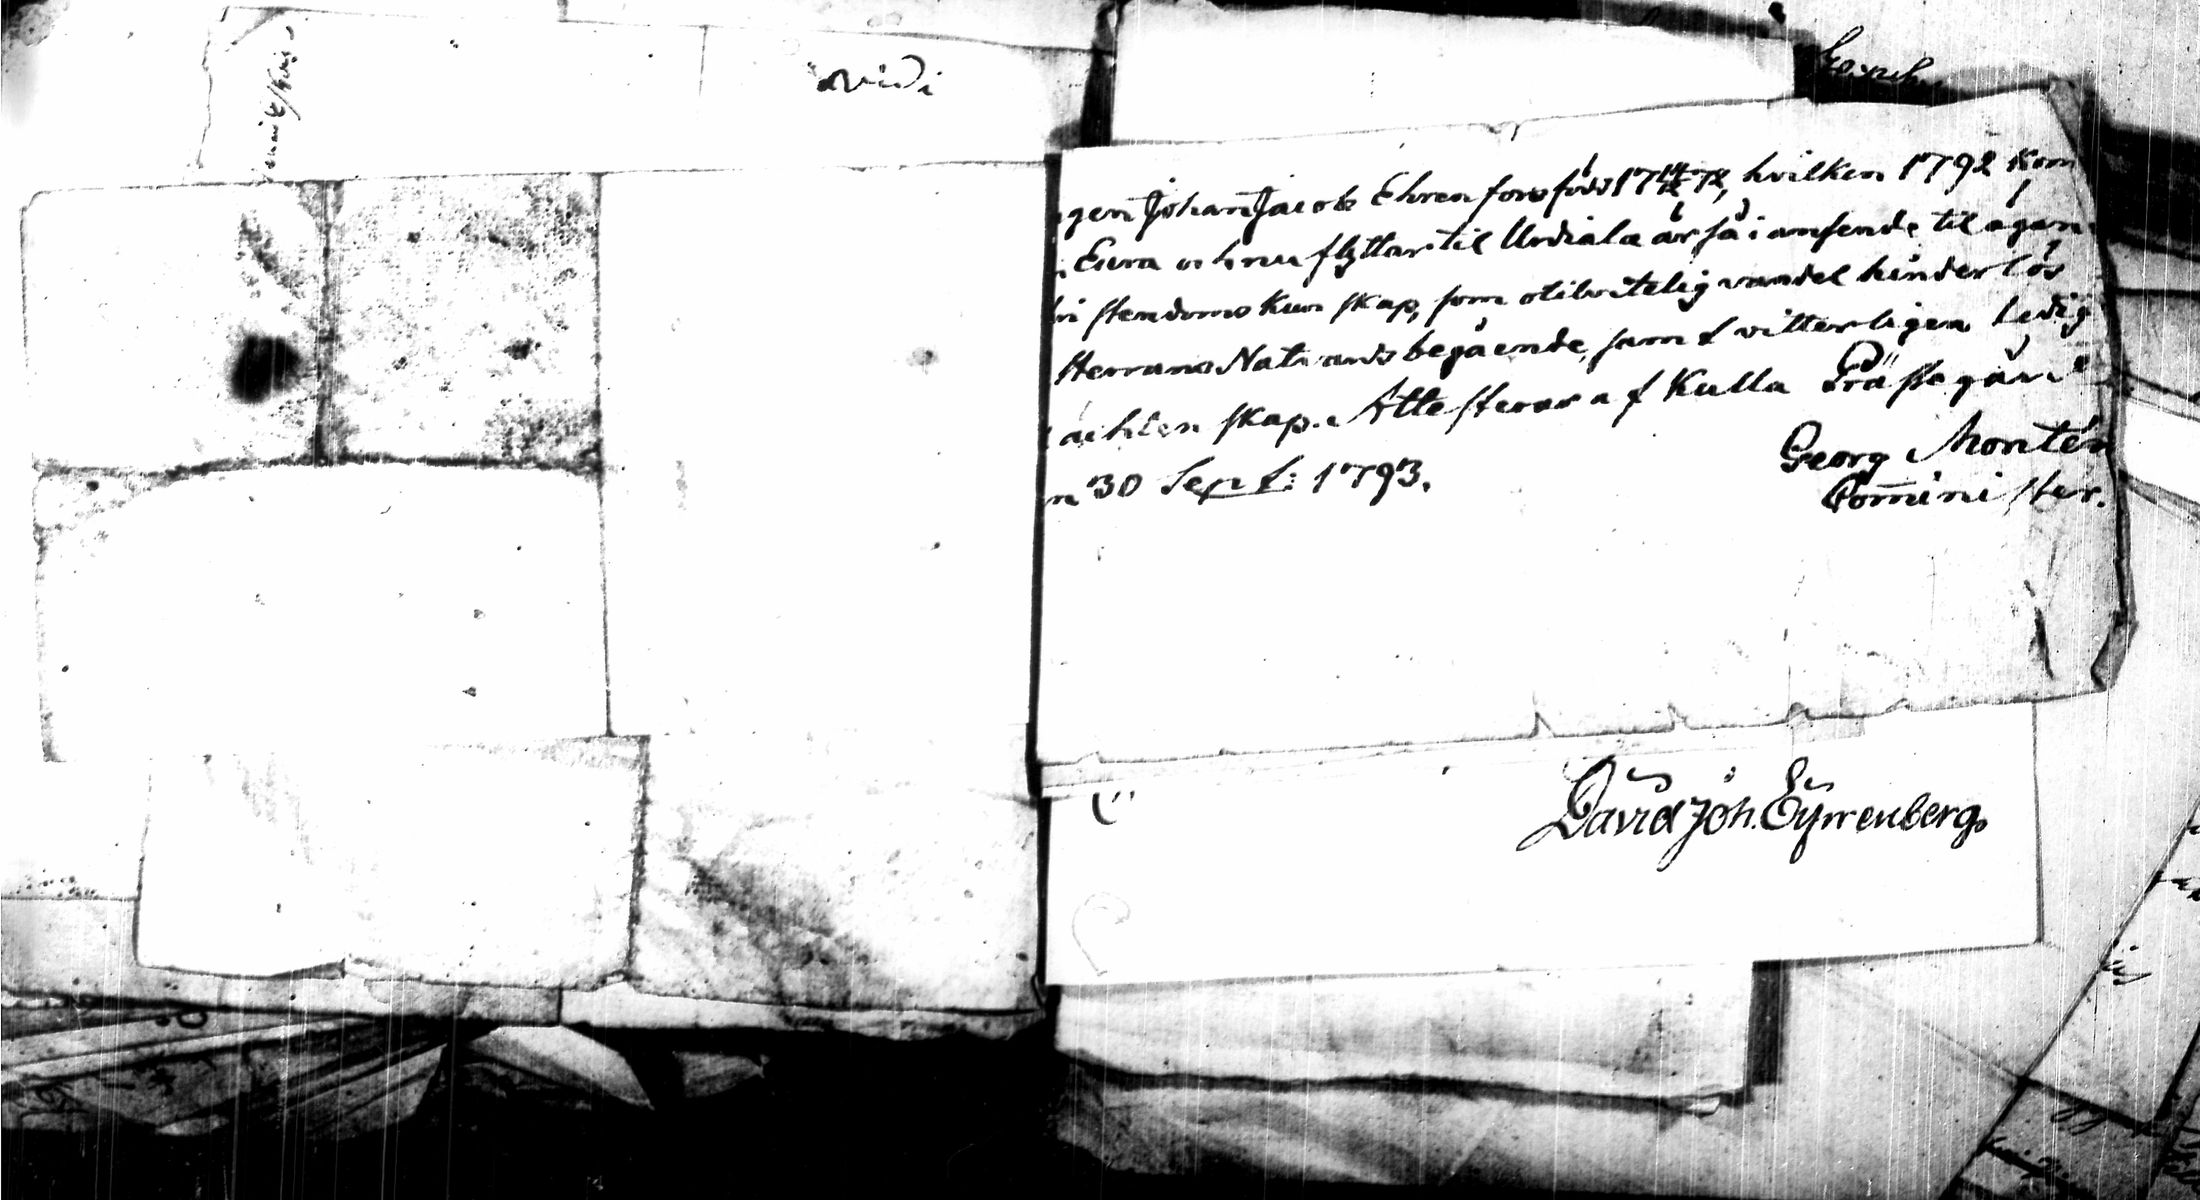 vidi
gen Johan Jacob Ehrenfors född 17 72, hvilken 1792 kom
Eura och nu flyttar til Urdiala är så i anseende til ägan
stendoms kunskap, som otilvitelig vandel hinderlös
Herrans Nattvards begående, samt vitterligen ledig
ächtenskap. Attesterar af Kulla Prästegård
n 30 Sept: 1793.
Georg Montén
Cominister.
David Joh. Eyrenberg